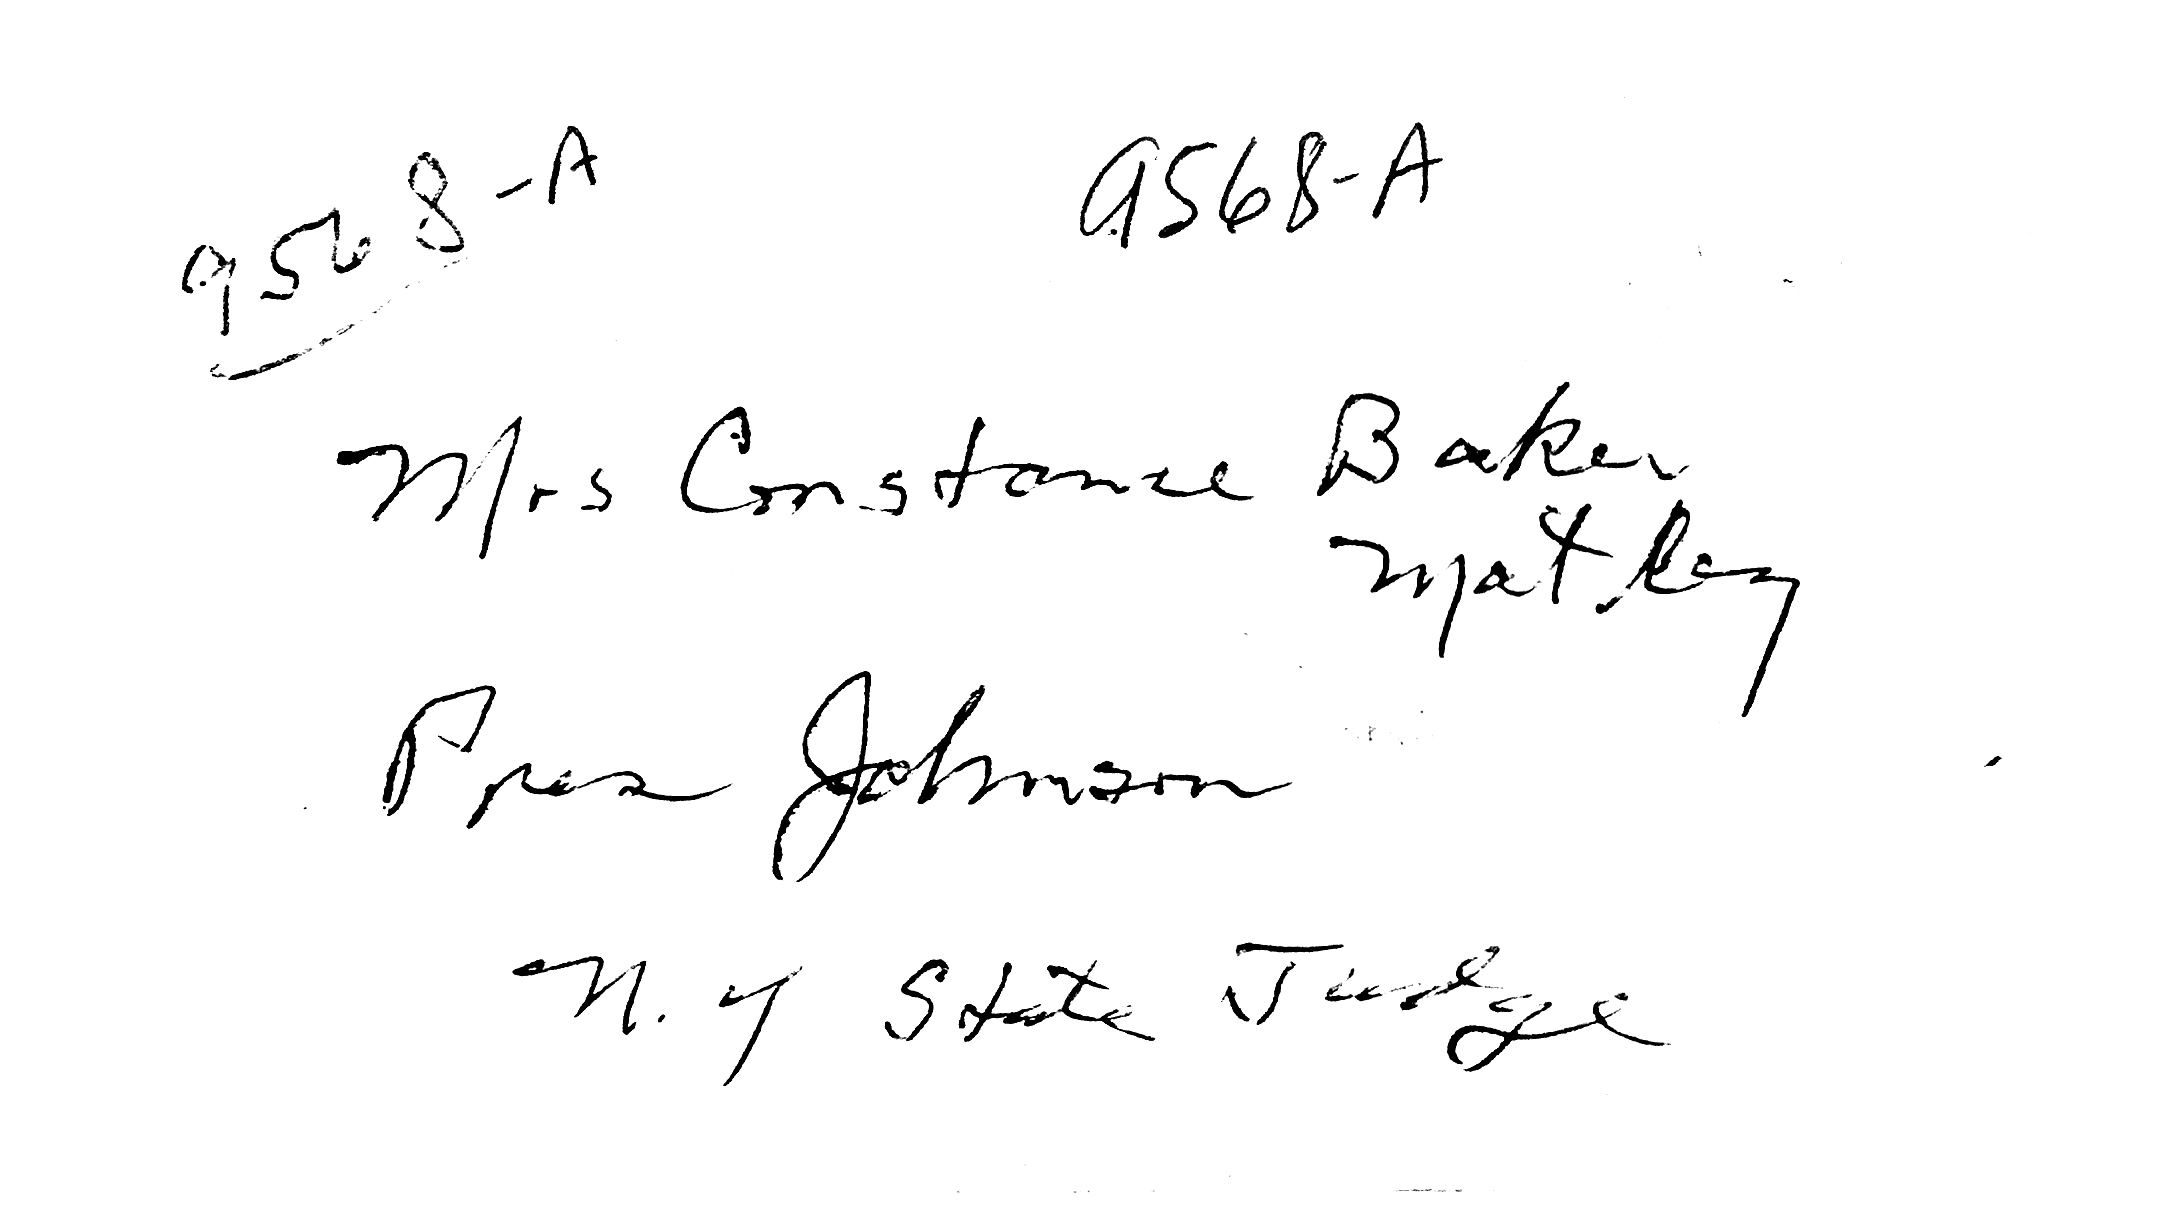 9568-A 9568-A
Mrs Constance Baker
Matley
Pres Johnson
N.Y State Judge